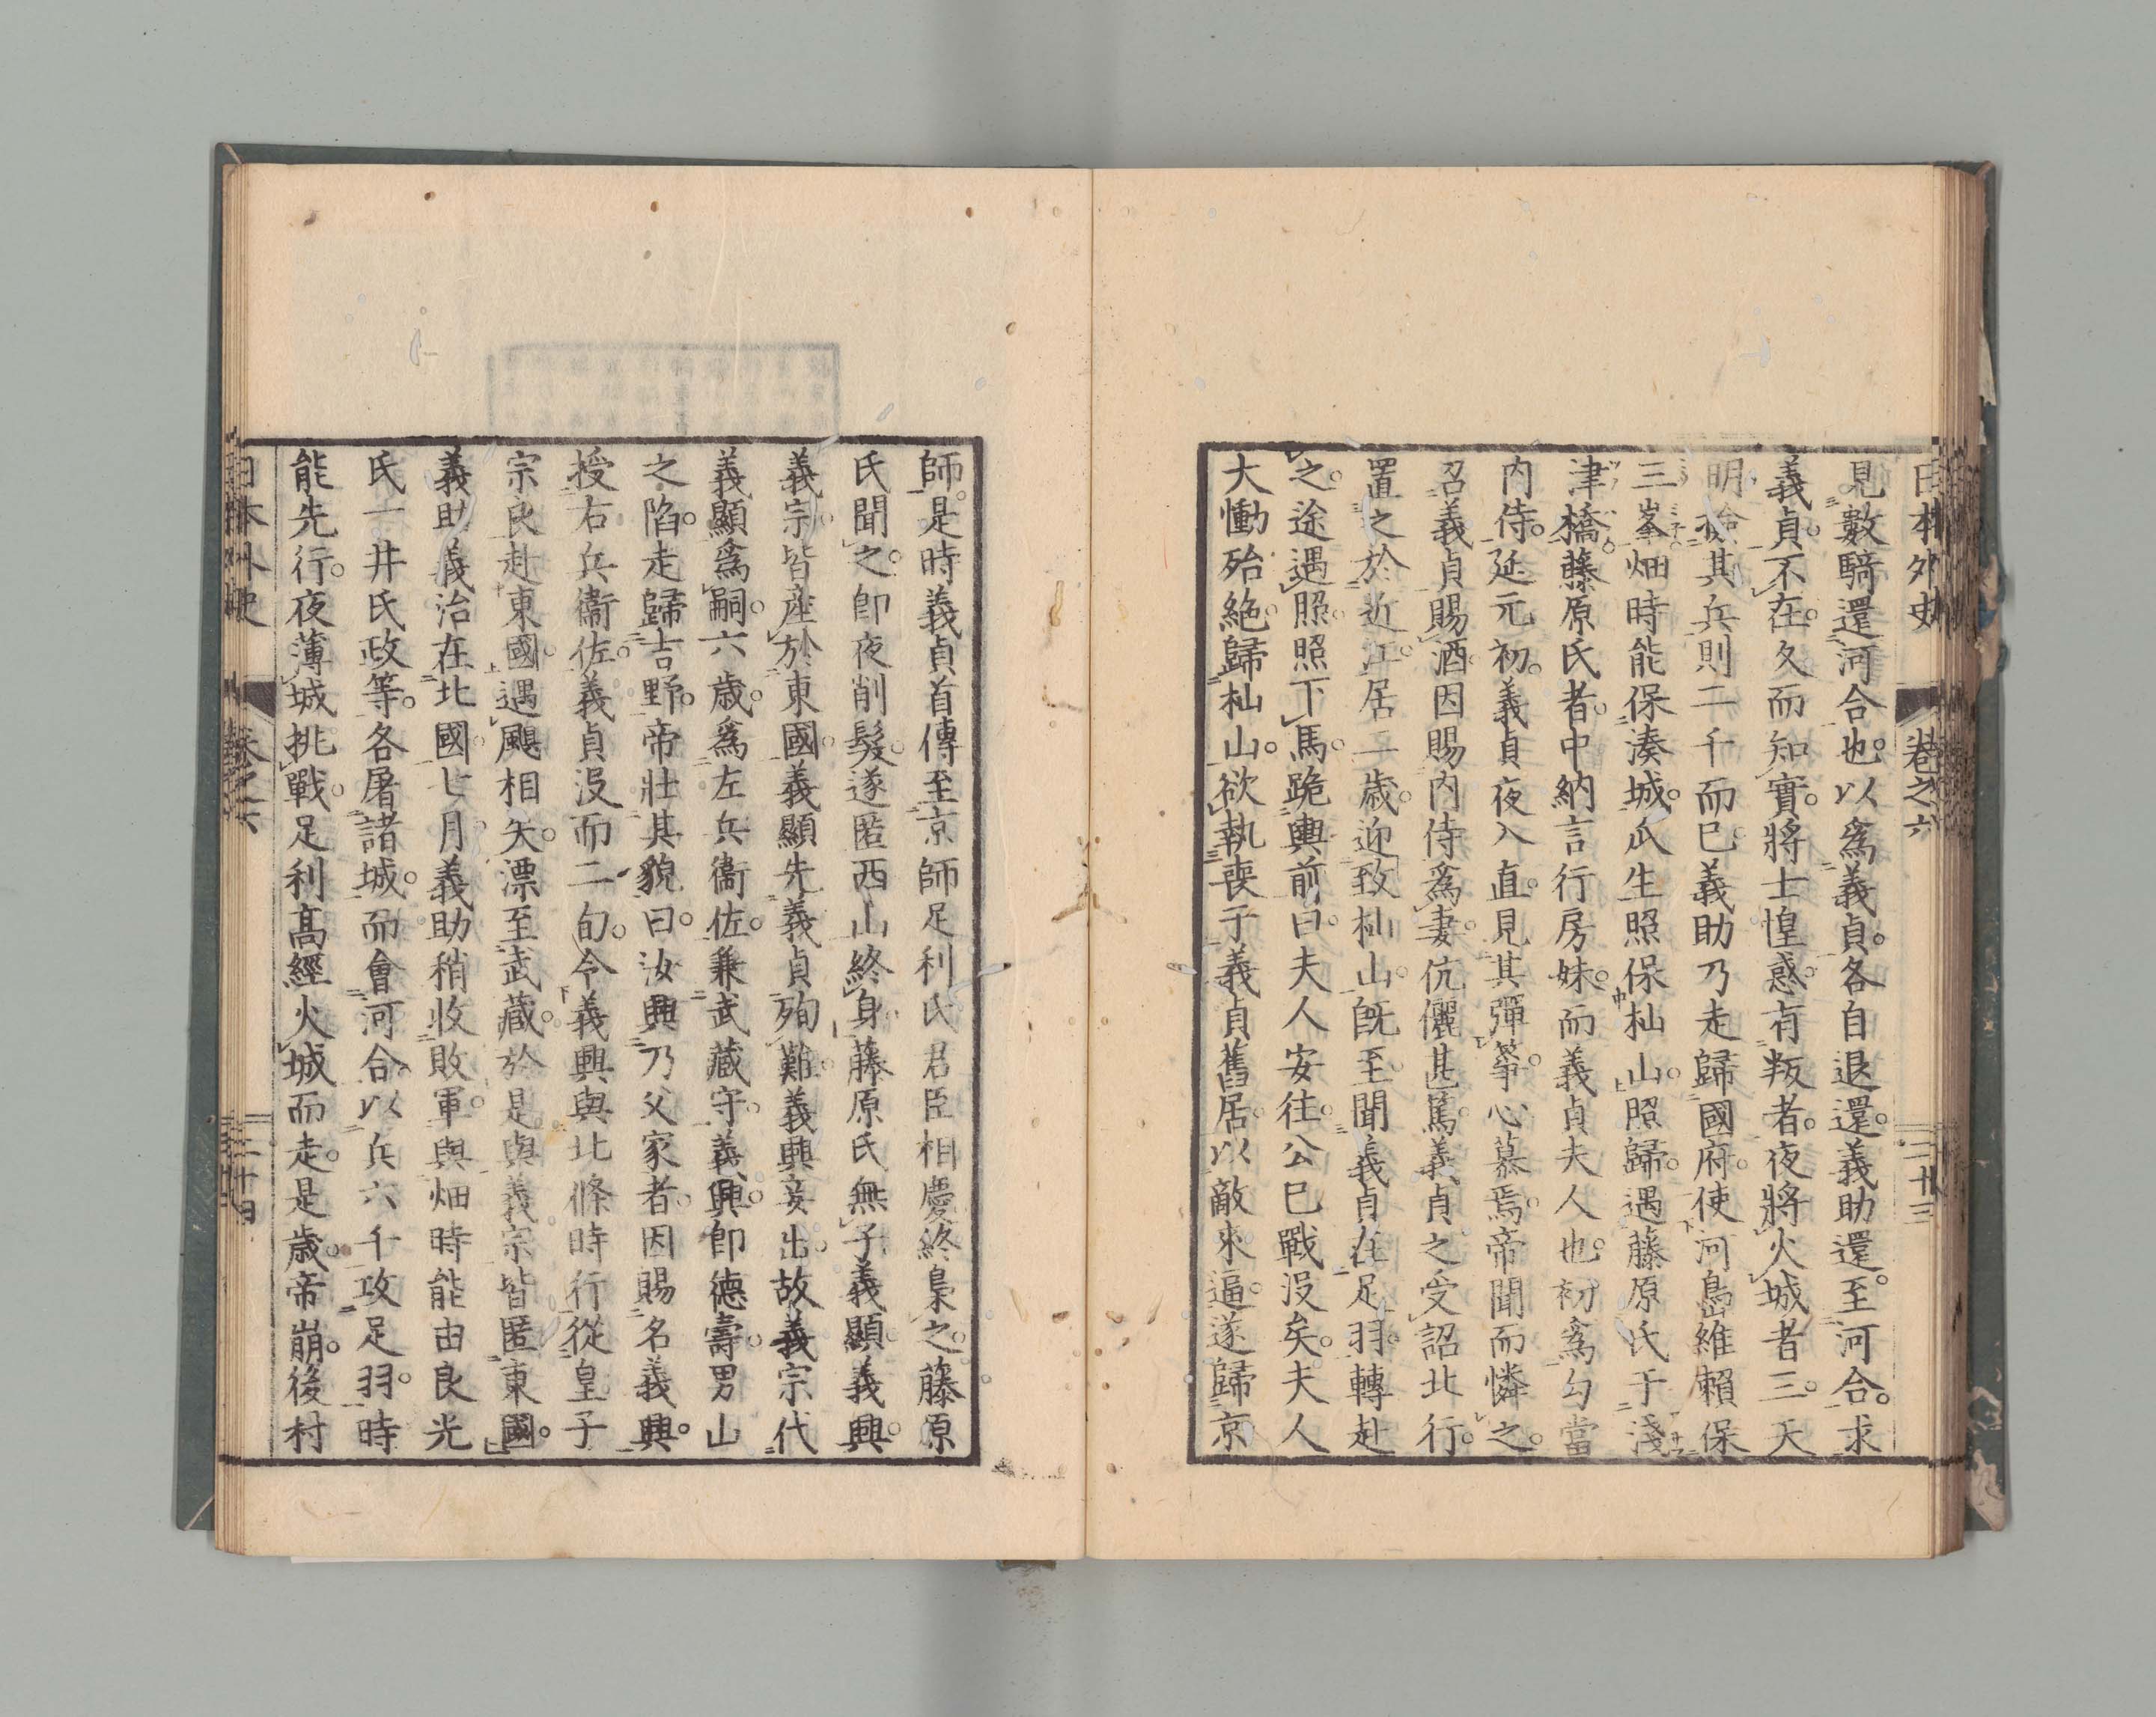 日本外史 卷之六 二十三
見數騎還河合也。以爲義貞。各自退還。義助還。至河合。求
義貞。不在。久而知實。將士惶惑。有叛者。夜將火城者三。天
明檢其兵則二千而已。義助乃走歸國府。使河島維賴保
三峯。畑時能保湊城。瓜生照保杣山。照歸。遇藤原氏于淺
津橋。藤原氏者。中納言行房妹。而義貞夫人也。初爲勾當
內侍。延元初。義貞夜入直。見其彈箏。心慕焉。帝聞而憐之。
召義貞賜酒。因賜內侍爲妻。伉儷甚篤。義貞之受詔北行。
置之於近江。居二歲。迎致杣山。既至。聞義貞在足羽。轉赴
之。途遇照。照下馬跪輿前曰。夫人安往。公已戰沒矣。夫人
大慟殆絶。歸杣山。欲執喪于義貞舊居。以敵來逼。遂歸京
師。是時義貞首傳至京師。足利氏君臣相慶。終梟之。藤原
氏聞之。卽夜削髮。遂匿西山終身。藤原氏無子。義顯義興。
義宗皆産於東國。義顯先義貞殉難。義興妾出。故義宗代
義顯爲嗣。六歲。爲左兵衞佐。兼武藏守。義興卽德壽。男山
之陷。走歸吉野。帝壯其貌。曰。汝興乃父家者。因賜名義興。
授右兵衞佐。義貞沒而二旬。令義興與北條時行從皇子
宗良赴東國。遇颶相失。漂至武藏。於是與義宗皆匿東國。
義助義治在北國。七月義助稍收敗軍。與畑時能由良光
氏一井氏政等。各屠諸城。而會河合。以兵六千攻足羽。時
能先行。夜薄城挑戰。足利高經火城而走。是歲。帝崩。後村
日本外史 卷之六 二十四